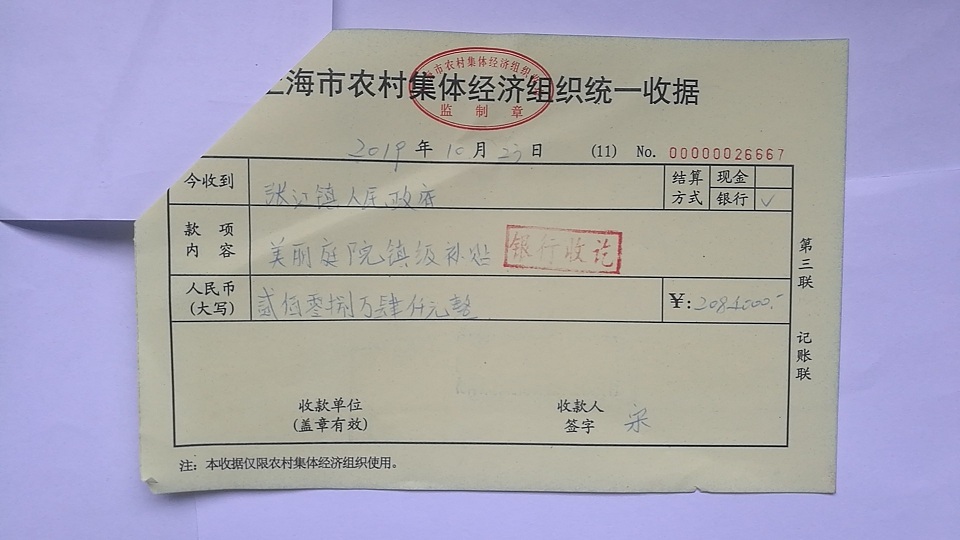 上海市农村集体经济组织统一收据
监制章
2019年10月23日 (11) No. 00000026667
今收到 张江镇人民政府 结算方式 现金
银行 ✓
款项内容 美丽庭院镇级补贴 银行收讫
人民币(大写) 贰佰零捌万肆仟元整 ¥:2084000.-
第三联 记账联
收款单位 收款人
(盖章有效) 签字 宋
注：本收据仅限农村集体经济组织使用。